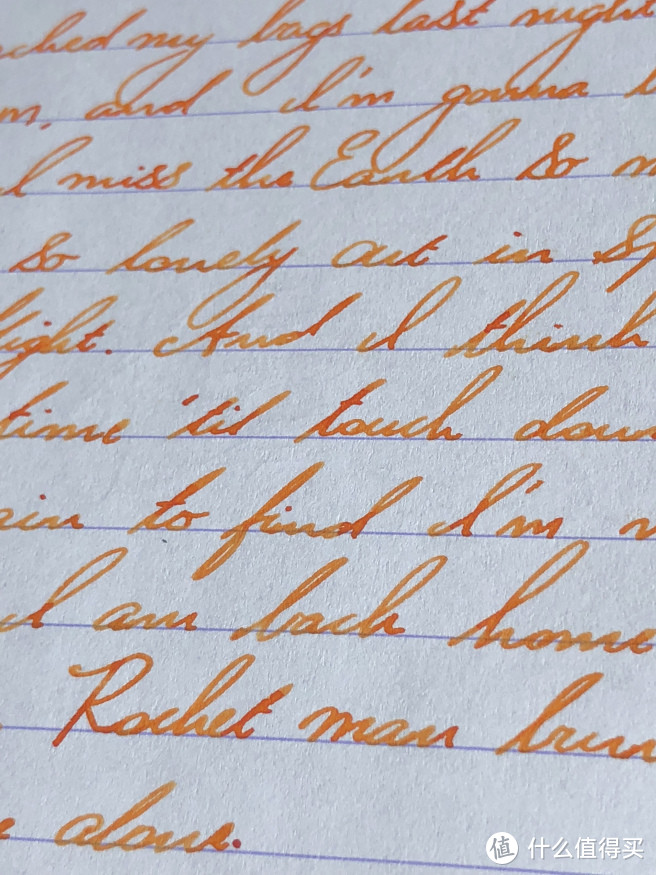 ched my bags last night
m, and I'm gonna b
I miss the Earth so m
so lonely out in sp
light. And I think
time 'til touch down
ain to find I'm n
I am back home
Rocket man burn
e alone.
值 什么值得买